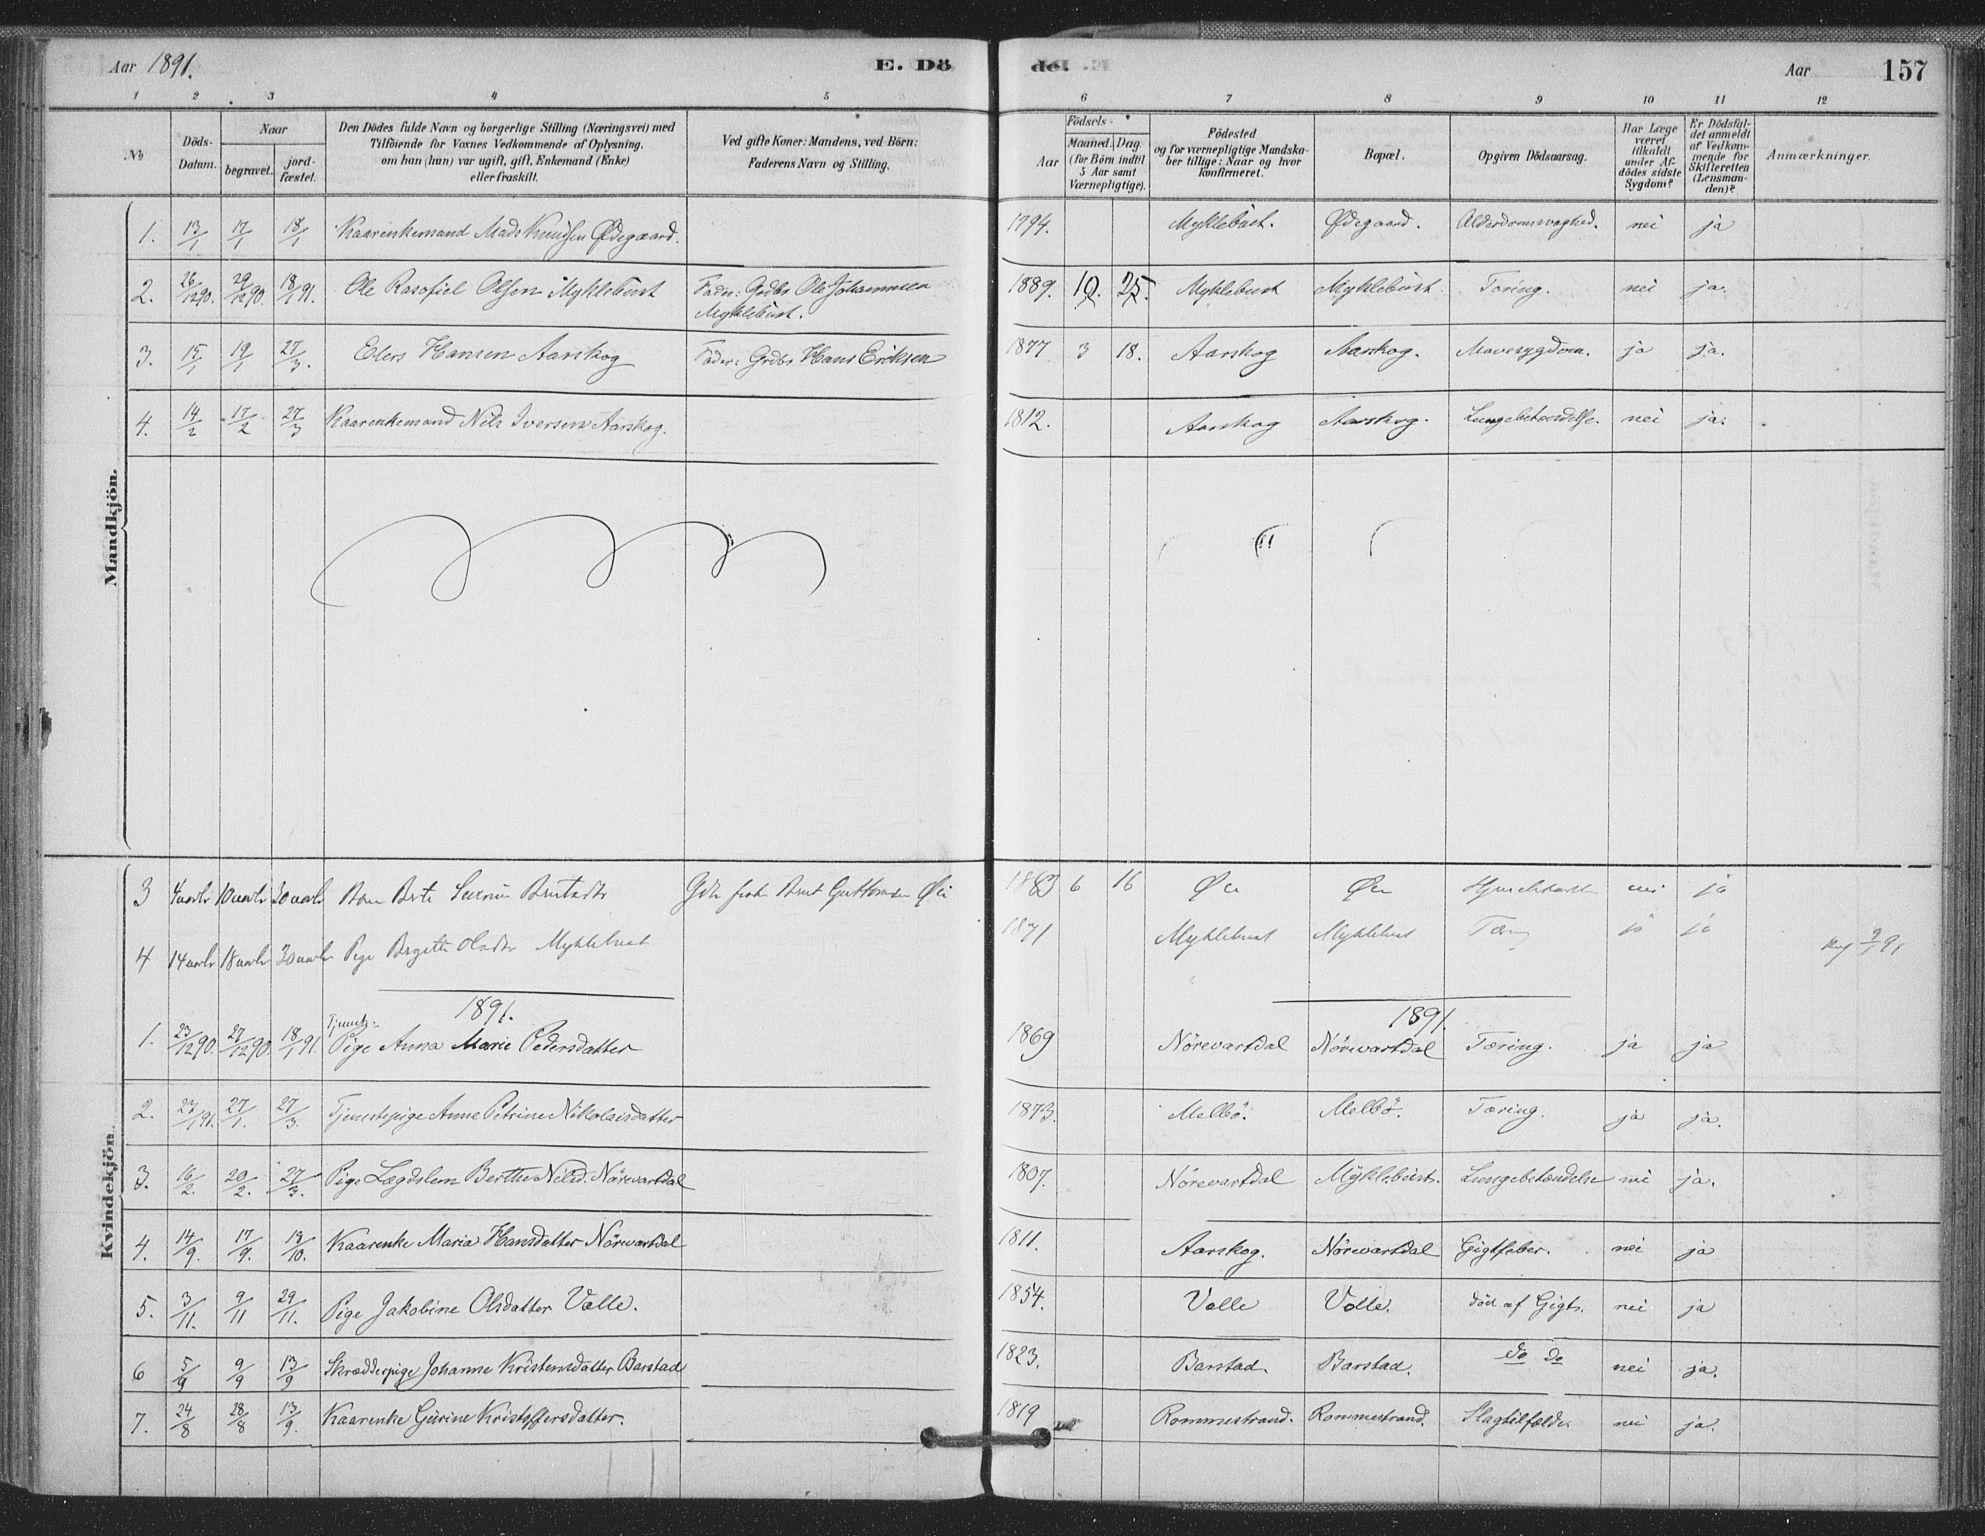 Aar 1891. E. Dö
de. Aar 157
1 2 3 4 5 6 7 8 9 10 11 12
No Döds-Datum. Naar begravet. jord-fæstet. Den Dödes fulde Navn og borgerlige Stilling (Næringsvei) med Tilföiende for Voxnes Vedkommende af Oplysning, om han (hun) var ugift, gift, Enkemand (Enke) eller fraskilt. Ved gifte Koner: Mandens, ved Börn: Faderens Navn og Stilling.
Födsels- Aar Maaned. Dag. (for Börn indtil 5 Aar samt Værnepligtige). Födested og for værnepligtige Mandskaber tillige: Naar og hvor konfirmeret. Bopæl. Opgiven Dödsaarsag. Har Læge været tilkaldt under Afdödes sidste Sygdom? Er Dödsfaldet anmeldt af Vedkommende for Skifteretten (Lensmanden)? Anmærkninger.
Mandkjön.
1. 13/1 17/1 18/1 Kaarenkemand Mads Knudsen Ødegaard. 1794. Myklebust. Ødegaard. Alderdomssvaghed. nei ja
2. 26/12 90. 29/12 90. 18/1 91. Ole Rasofiel Olsen Myklebust Fader: Grdbr Ole Johannesen 1889. 10. 25. Myklebust Myklebust. Tæring. nei ja.
Myklebust.
3. 15/1 19/1 27/3. Elers Hansen Aarskog Fader: Grdbr Hans Eriksen 1877 3 18. Aarskog Aarskog. Mavesygdom. ja ja.
4. 14/2 17/2 27/3 Kaarenkemand Nils Iversen Aarskog. 1812. Aarskog Aarskog. Lungebetændelse. nei ja.
Kvindekjön.
3 4 10 30 Berte 1883 6 16 Øie Øie nei ja
4 14 18 30 Pige Birgitte Olsdtr Myklebust 1871 Myklebust Myklebust Tæring ja ja 91
1891. 1891.
1. 23/12 90. 27/12 90. 18/1 91. Tjeneste-Pige Anna Marie Pedersdatter 1869 Nörevartdal Nörevartdal Tæring. ja ja
2. 23/1 91. 27/1. 27/3. Tjenestepige Anne Petrine Nikolaisdatter 1873. Melbö. Melbö. Tæring. ja ja.
3. 16/2. 20/2. 27/3. Pige Lægdslem Berthe Nilsd. Nörevartdal 1807. Nörevartdal Myklebust. Lungebetændelse nei ja.
4. 14/9. 17/9. 19/10. Kaarenke Maria Hansdatter Nörevartdal 1811. Aarskog. Nörevartdal Gigtfeber. nei ja
5. 3/11. 9/11 29/11. Pige Jakobine Olsdatter Valle. 1854. Valle Valle. död af Gigt. nei ja
6 5/9 9/9 13/9 Skrædderpige Johanne Kristensdatter Barstad 1823. Barstad. Barstad. do do nei ja.
7. 24/8 28/8 13/9. Kaarenke Gurine Kristoffersdatter. 1819 Rommestrand. Rommestrand. Slagtilfælde. nei ja.